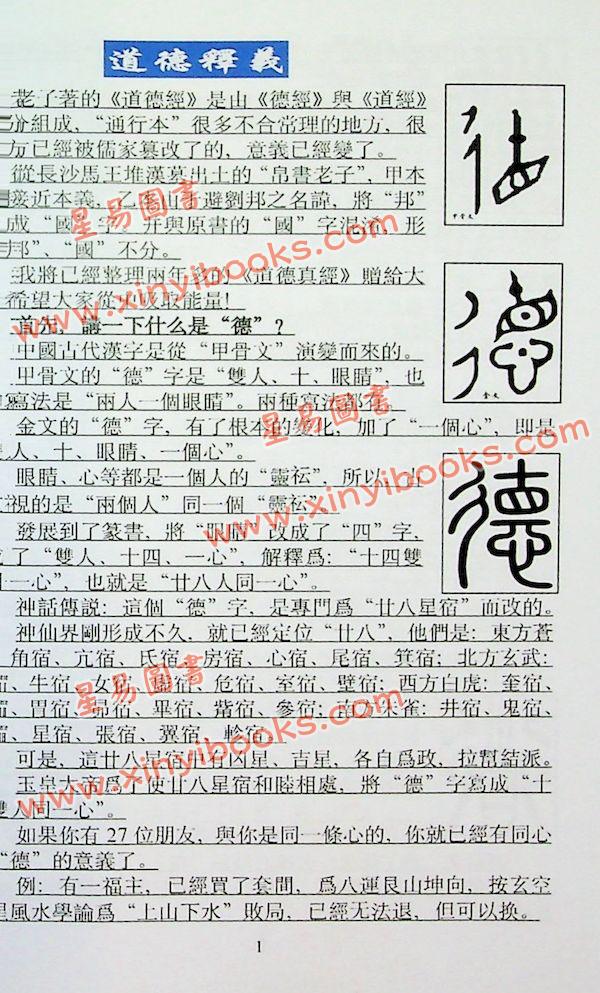 道德釋義
老子著的《道德經》是由《德經》與《道經》
分組成，“通行本”很多不合常理的地方，很
方已經被儒家篡改了的，意義已經變了。
從長沙馬王堆漢墓出土的“帛書老子”，甲本
接近本義，乙本由于避劉邦之名諱，將“邦”
成“國”字，并與原書的“國”字混淆，形
邦”、“國”不分。
我將已經整理兩年多的《道德真經》贈給大
希望大家從中吸取能量！
首先，講一下什么是“德”？
中國古代漢字是從“甲骨文”演變而來的。
甲骨文的“德”字是“雙人、十、眼睛”，也
寫法是“兩人一個眼睛”。兩種寫法都有。
金文的“德”字，有了根本的變化，加了“一個心”，即是
人、十、眼睛、一個心”。
眼睛、心等都是一個人的“靈
視的是“兩個人”同一個“靈
發展到了篆書，將“眼睛”改成了“四”字，
了“雙人、十四、一心”，解釋爲：“十四雙
一心”，也就是“廿八人同一心”。
神話傳説：這個“德”字，是專門爲“廿八星宿”而改的。
神仙界剛形成不久，就已經定位“廿八”，他們是：東方蒼
角宿、亢宿、氐宿、房宿、心宿、尾宿、箕宿；北方玄武：
宿、牛宿、女宿、虛宿、危宿、室宿、壁宿；西方白虎：奎宿、
宿、胃宿、昴宿、畢宿、觜宿、參宿；南方朱雀：井宿、鬼宿、
宿、星宿、張宿、翼宿、軫宿。
可是，這廿八星宿中有凶星、吉星，各自爲政，拉幫結派。
玉皇大帝爲了使廿八星宿和睦相處，將“德”字寫成“十
雙人同一心”。
如果你有27位朋友，與你是同一條心的，你就已經有同心
“德”的意義了。
例：有一福主，已經買了套間，爲八運艮山坤向，按玄空
星風水學論爲“上山下水”敗局，已經無法退，但可以换。
1
甲骨文
德
金文
德
德
星易圖書
www.xinyibooks.com
星易圖書
www.xinyibooks.com
www.xinyibooks.com
星易圖書
www.xinyibooks.com